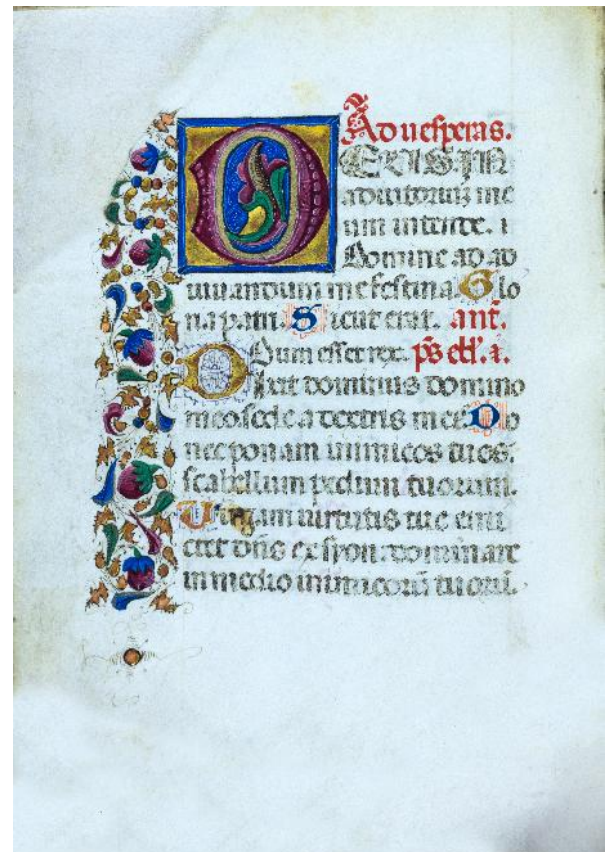 Ad uesperas.
DEUS IN
adiutoriuz me
um intende.
Domine ad ad
iuuandum me festina. Glo
ria patri. Sicut erat. ant̃.
Dum esset rex. ps̃
Dixit dominus domino
meo. sede a dextris meis. Do
nec ponam inimicos tuos:
scabellum pedum tuorum.
Uirgam uirtutis tue emi
ctet dñs ex syon: dominare
in medio inimicorũ tuorũ.